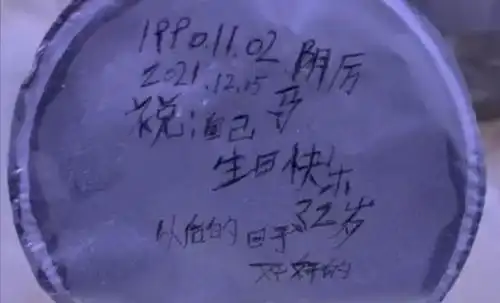 1990.11.02
2021.12.15 阴厉
祝自己
生日快乐
32岁
以后的日子
好好的